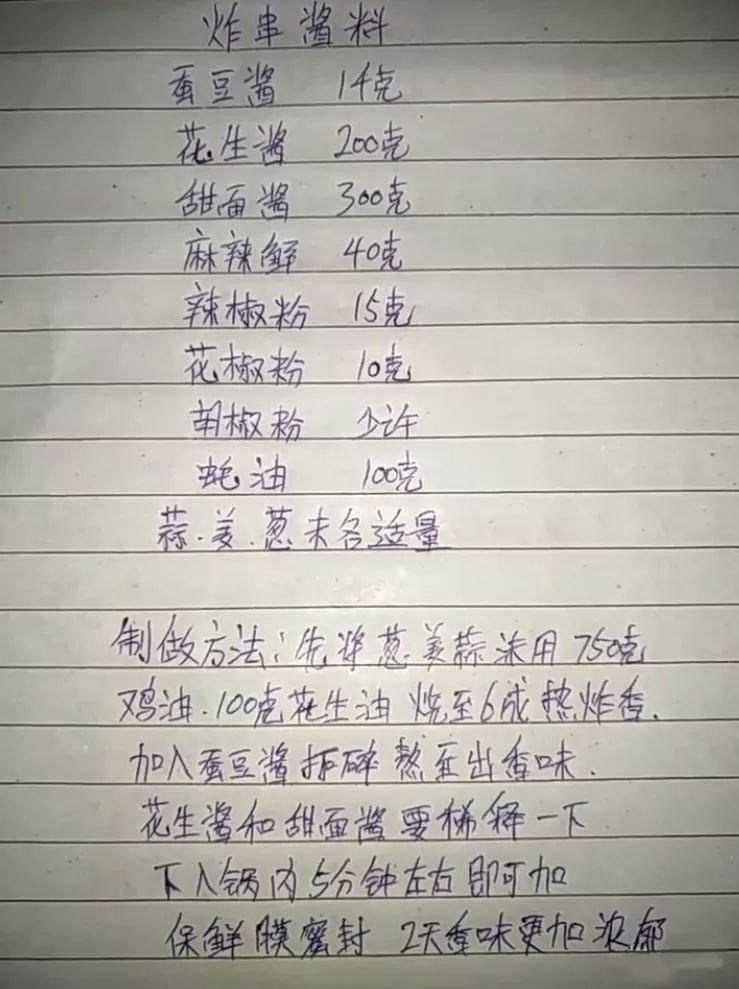 炸串酱料
蚕豆酱 14克
花生酱 200克
甜面酱 300克
麻辣鲜 40克
辣椒粉 15克
花椒粉 10克
胡椒粉 少许
蚝油 100克
蒜.姜.葱末各适量
制做方法:先将葱姜蒜沫用750克
鸡油.100克花生油 烧至6成热炸香.
加入蚕豆酱 碎 熬至出香味.
花生酱和甜面酱要稀释一下
下入锅内5分钟左右即可加
保鲜膜密封 2天香味更加浓郁